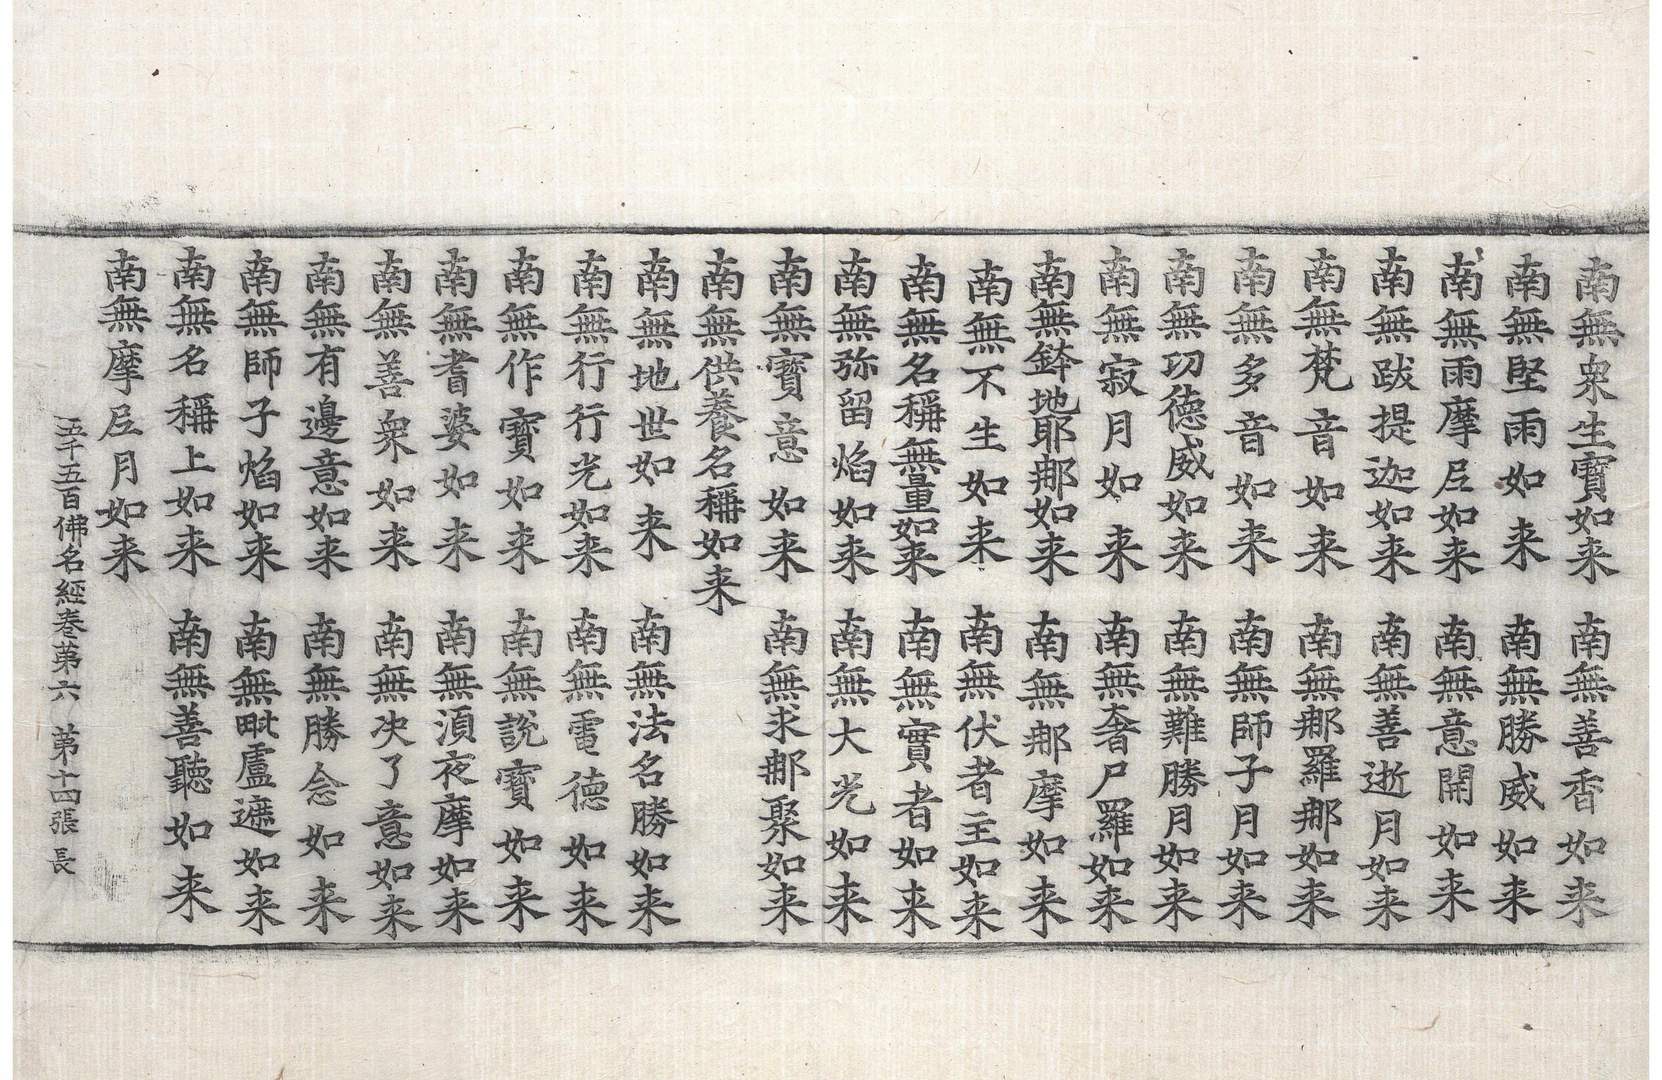 南無衆生寶如来 南無善香如来
南無堅雨如来 南無勝威如来
南無雨摩尼如来 南無意開如来
南無跋提迦如来 南無善逝月如来
南無梵音如来 南無那羅那如来
南無多音如来 南無師子月如来
南無功德威如来 南無難勝月如来
南無寂月如来 南無奢尸羅如来
南無鉢地耶那如来 南無那摩如来
南無不生如来 南無伏者主如来
南無名稱無量如来 南無實者如来
南無弥留焰如来 南無大光如来
南無寶意如来 南無求那聚如来
南無供養名稱如来
南無地世如来 南無法名勝如来
南無行行光如来 南無電德如来
南無作寶如来 南無說寶如来
南無耆婆如来 南無湏夜摩如来
南無善衆如来 南無决了意如来
南無有邊意如来 南無勝念如来
南無師子焰如来 南無毗盧遮如来
南無名稱上如来 南無善聽如来
南無摩尼月如来
五千五百佛名經卷第六 第十四張 長